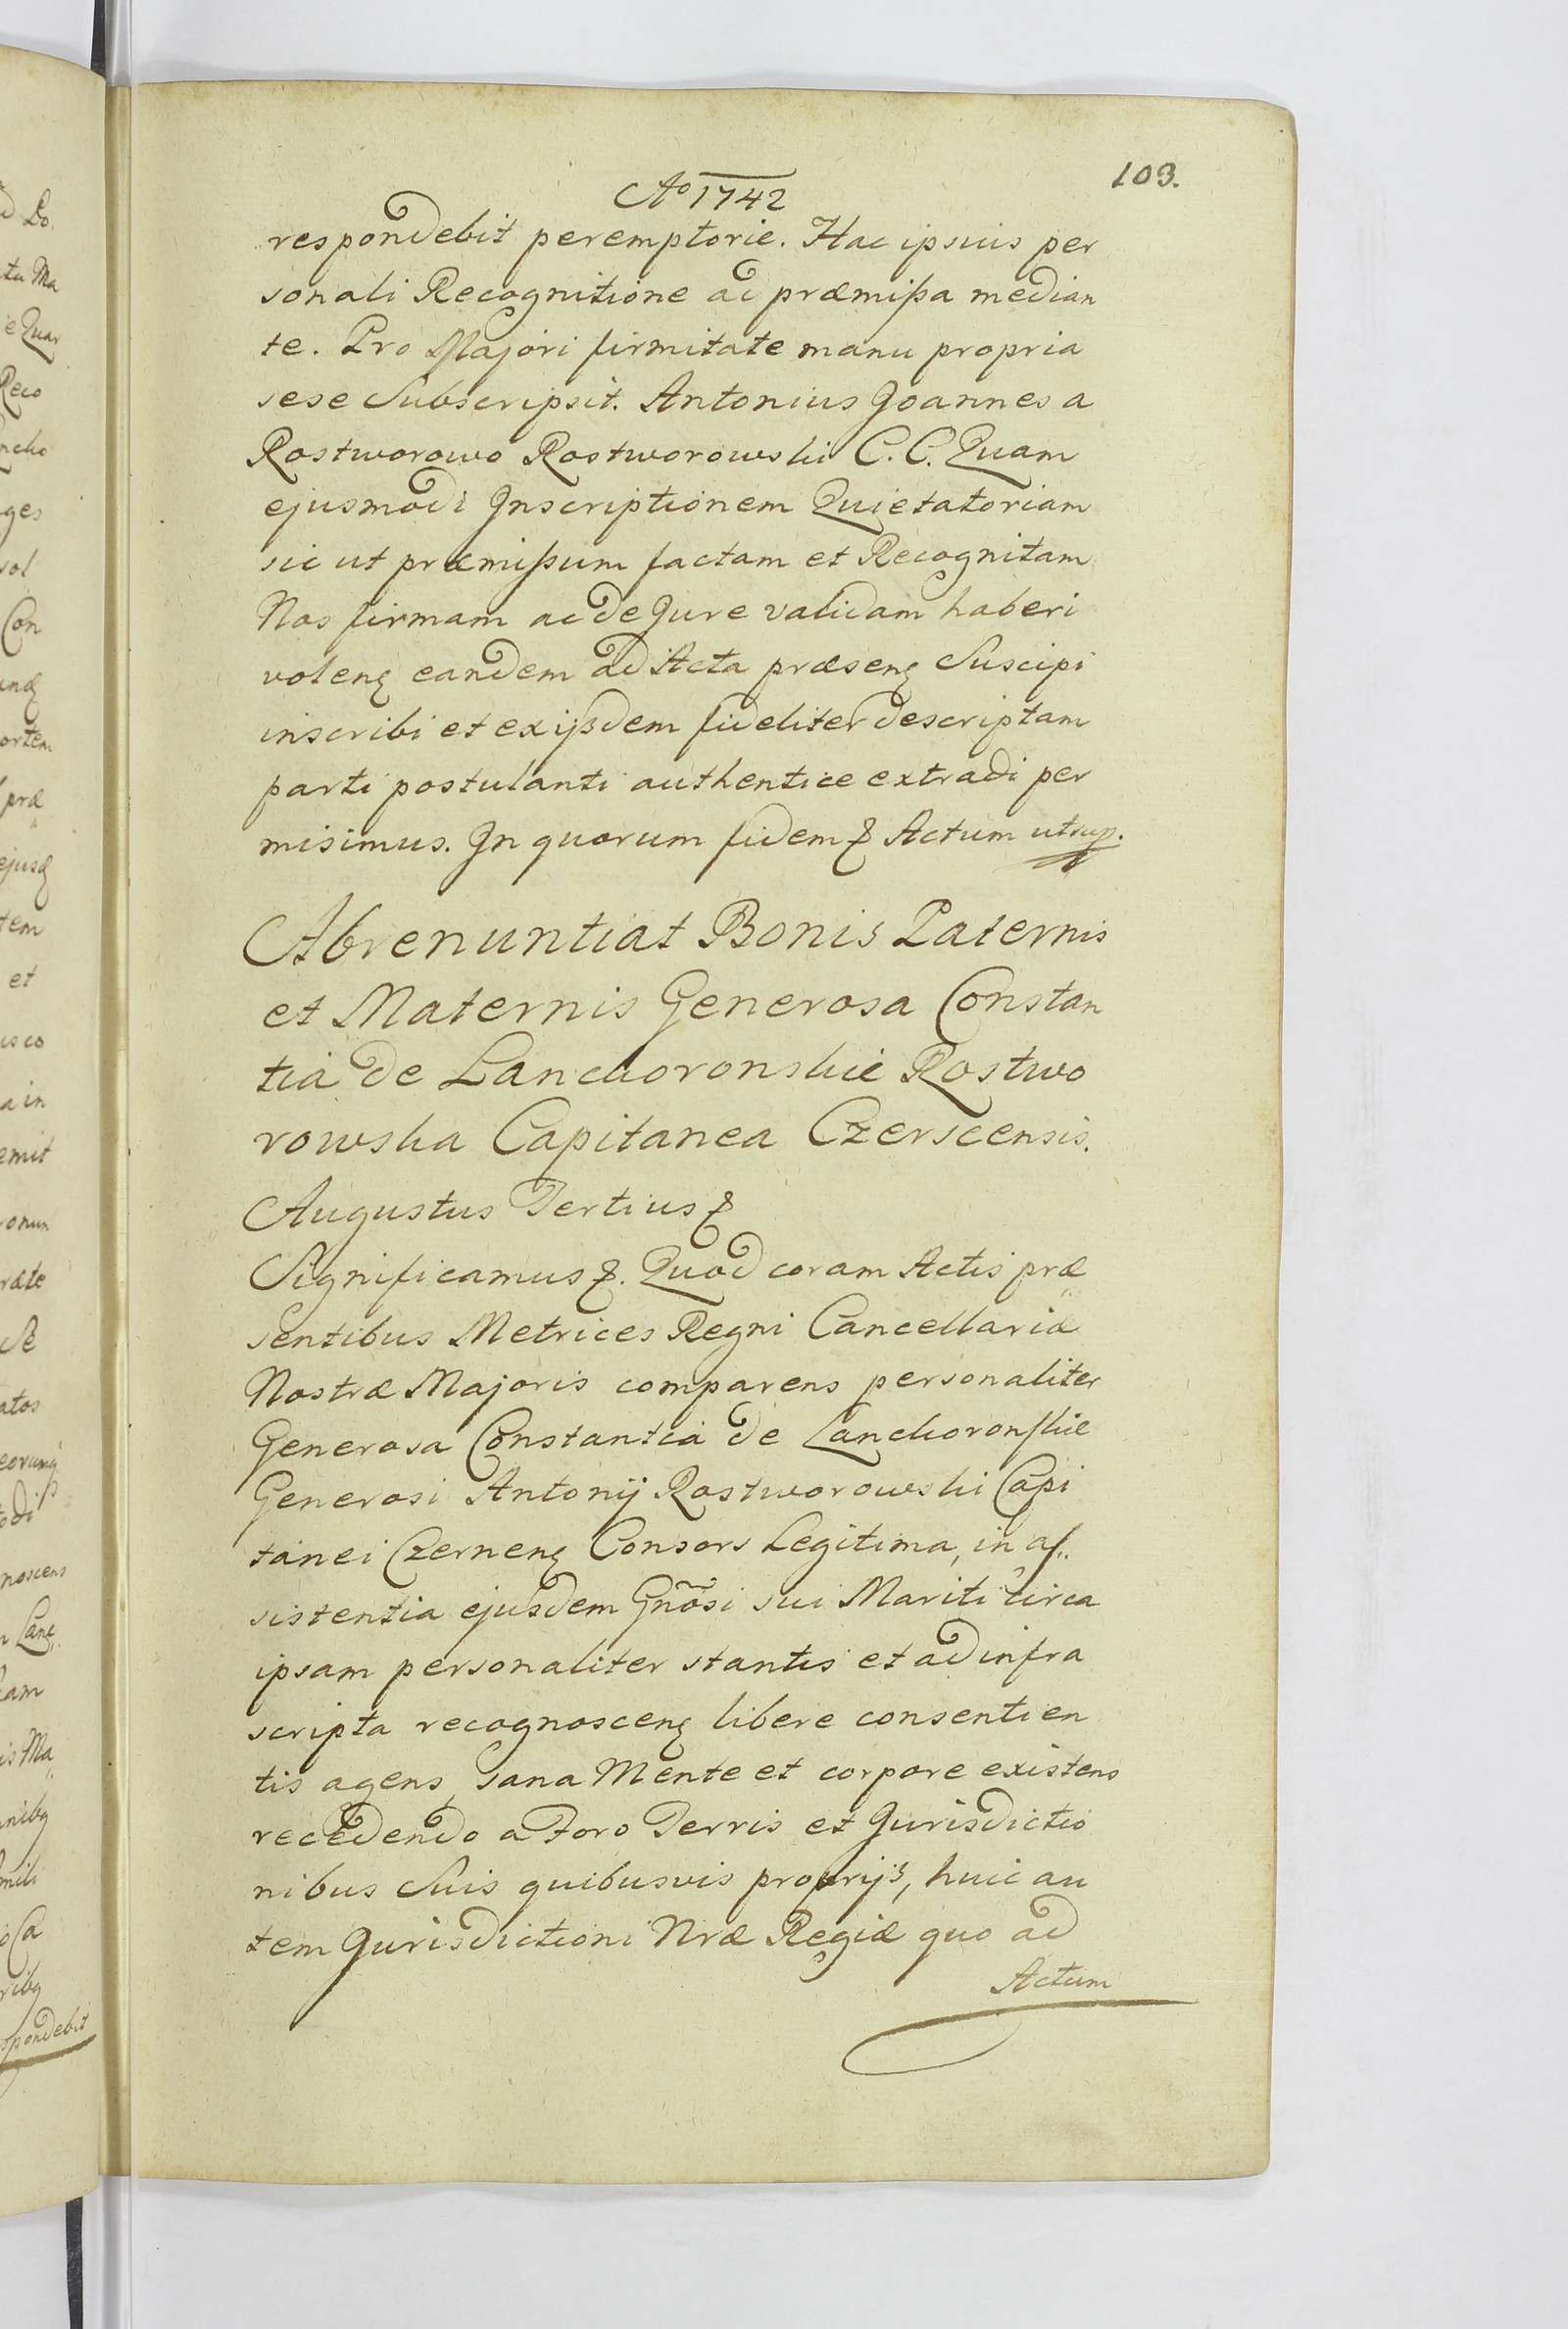 103.
Aº 1742
respondebit peremptorie. Hac ipsius per
sonali Recognitione ad præmißa median
te. Pro Majori firmitate manu propria
sese Subscripsit. Antonius Joannes a
Rostworowo Rostworowski C. C. Quam
ejusmodi Inscriptionem Quietatoriam
sic ut præmißum factam et Recognitam
Nos firmam ac de Jure validam haberi
volenȩ eandem ad Acta præsenȩ Suscipi
inscribi et exijsdem fideliter descriptam
parti postulanti authentice extradi per
misimus. In quorum fidem & Actum utsup.
Abrenuntiat Bonis Paternis
et Maternis Generosa Constan
tia de Lanckoronskie Rostwo
rowska Capitanea Czerscensis.
Augustus Tertius &
Significamus &. Quod coram Actis præ
sentibus Metrices Regni Cancellariæ
Nostræ Majoris comparens personaliter
Generosa Constantia de Lanckoronskie
Generosi Antonij Rostworowski Capi
tanei Czernenȩ Consors Legitima, in as
sistentia ejusdem Gnõsi sui Mariti circa
ipsam personaliter stantis et ad infra
scripta recognoscenȩ libere consentien
tis agens, sana Mente et corpore existens
recedendo a Foro Terris et Jurisdictio
nibus Suis quibusvis proprijs, huic au
tem Jurisdictioni Nræ Regiæ quo ad
Actum